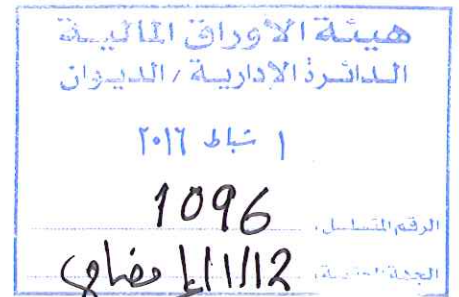 هيئة الأوراق المالية
الدائرة الإدارية / الديوان
١ شباط ٢٠١٦
الرقم المتسلسل: 1096
الجهة المختصة: